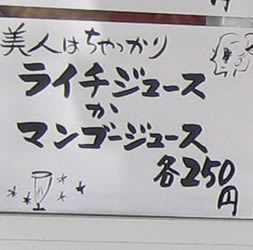 美人はちゃっかり
ライチジュース
か
マンゴージュース
各250円